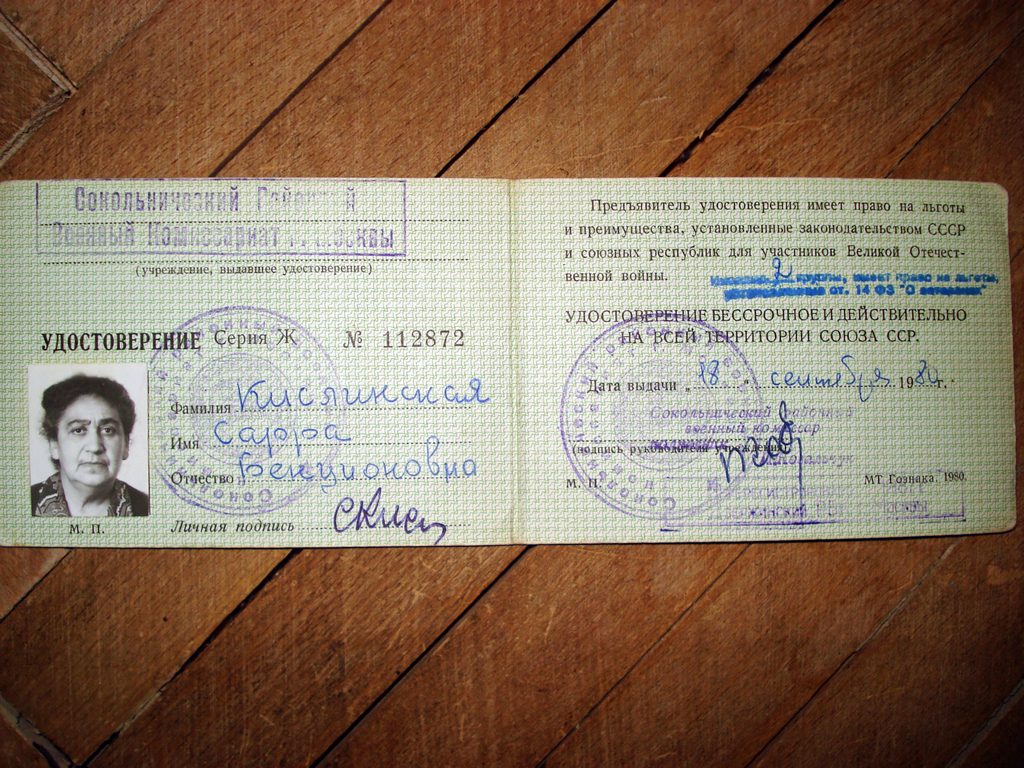 Сокольнический
Военный Комиссариат г. Москвы
(учреждение, выдавшее удостоверение)
УДОСТОВЕРЕНИЕ Серия Ж № 112872
Фамилия
Имя Сарра
Отчество Бенционовна
М. П. Личная подпись
Предъявитель удостоверения имеет право на льготы
и преимущества, установленные законодательством СССР
и союзных республик для участников Великой Отечест-
венной войны.
2 группы, имеет право на льготы,
ст. 14 ФЗ "О ветеранах"
УДОСТОВЕРЕНИЕ БЕССРОЧНОЕ И ДЕЙСТВИТЕЛЬНО
НА ВСЕЙ ТЕРРИТОРИИ СОЮЗА ССР.
Дата выдачи „18" сентября 1980 г.
Сокольнический районный
военный комиссар
(подпись руководителя учреждения)
М. П. МТ Гознака. 1980.